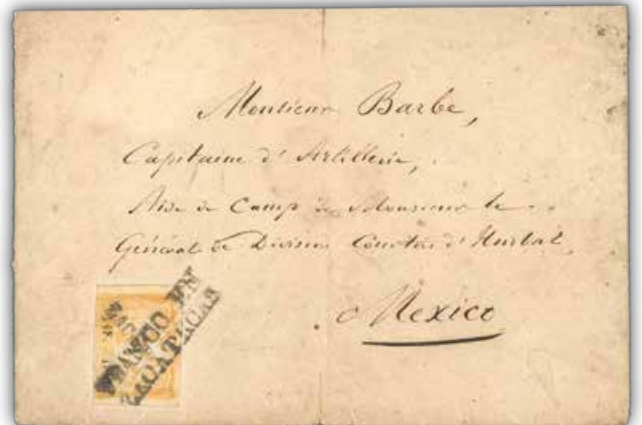 Monsieur Barbe,
Capitaine d'Artillerie,
Aide de Camp de Monsieur le
Général de Division Courtois d'Hurbal
Mexico
FRANCO EN
ZACATECAS